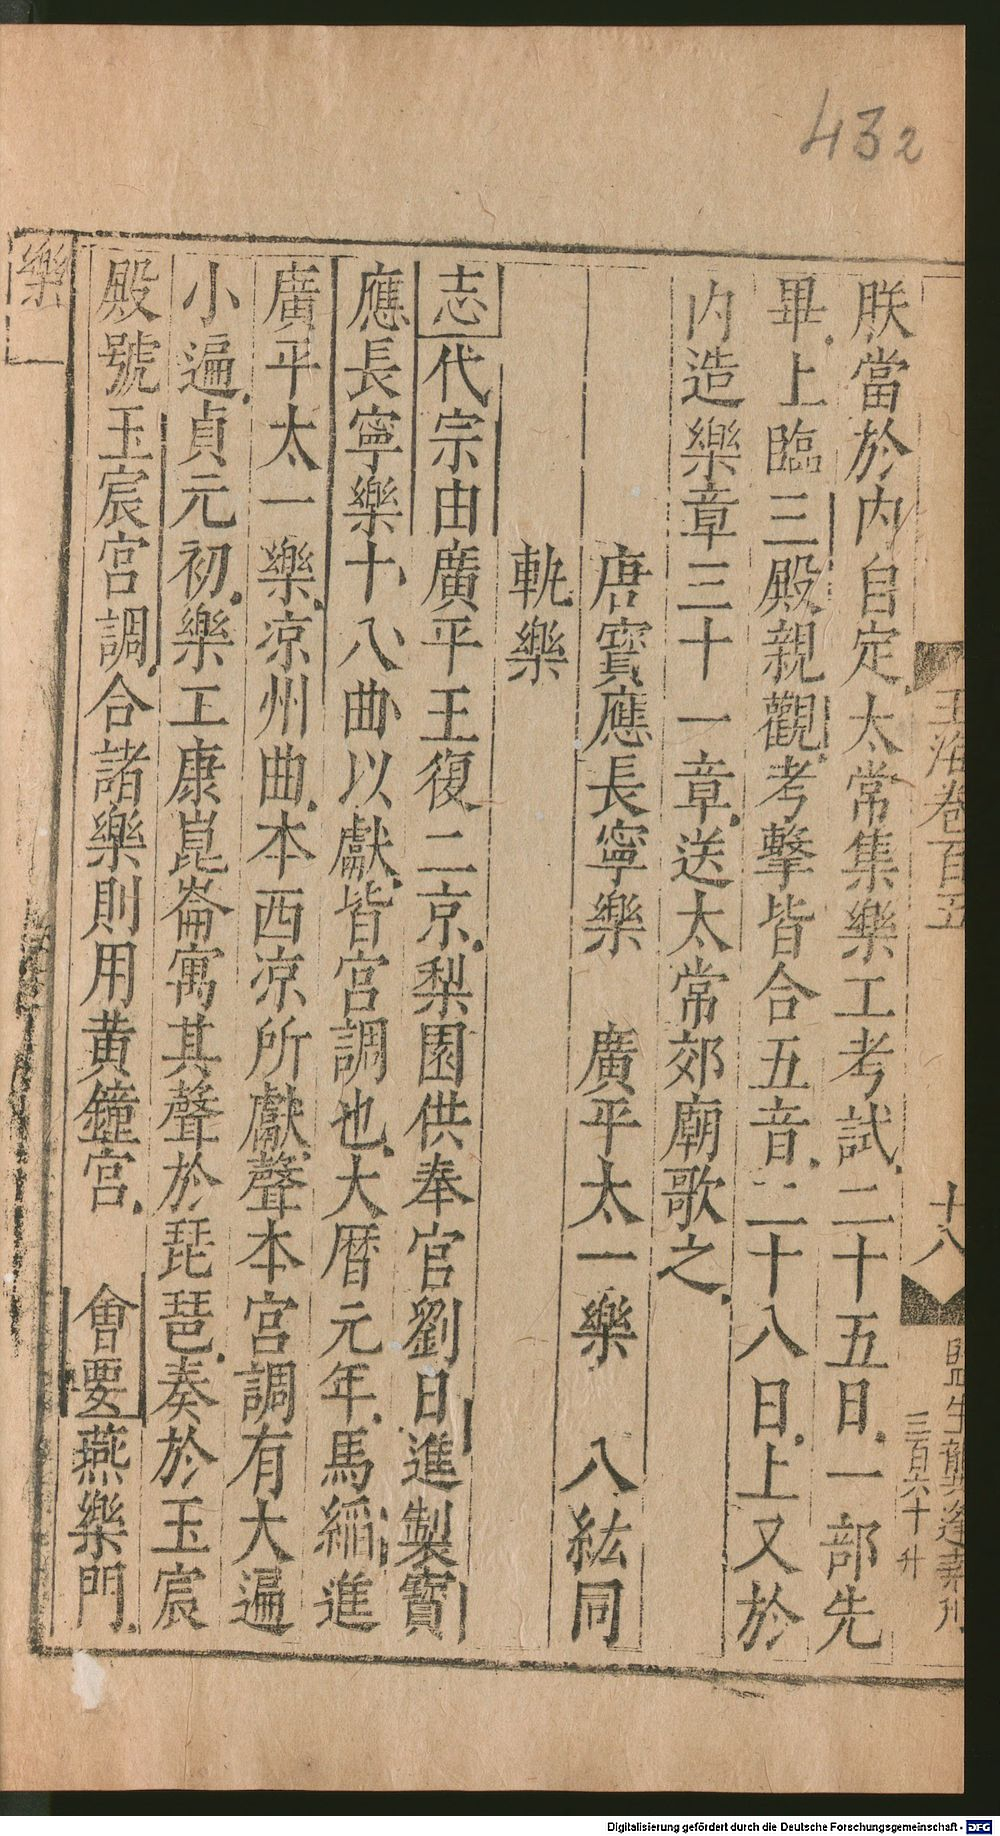 432
玉海卷百五
十八
三百六十
升
朕當於内自定太常集樂工考試二十五日一部先
畢上臨三殿親觀考擊皆合五音二十八日上又於
内造樂章三十一章送太常郊廟歌之
唐寶應長寧樂 廣平太一樂 八紘同
軌樂
志代宗由廣平王復二京梨園供奉官劉日進製寶
應長寧樂十八曲以獻皆宮調也大曆元年馬緬進
廣平太一樂凉州曲本西凉所獻聲本宮調有大遍
小遍貞元初樂工康崑崙寓其聲於琵琶奏於玉宸
殿號玉宸宫調合諸樂則用黄鐘宫 會要燕樂門
樂一
Digitalisierung gefördert durch die Deutsche Forschungsgemeinschaft - DFG